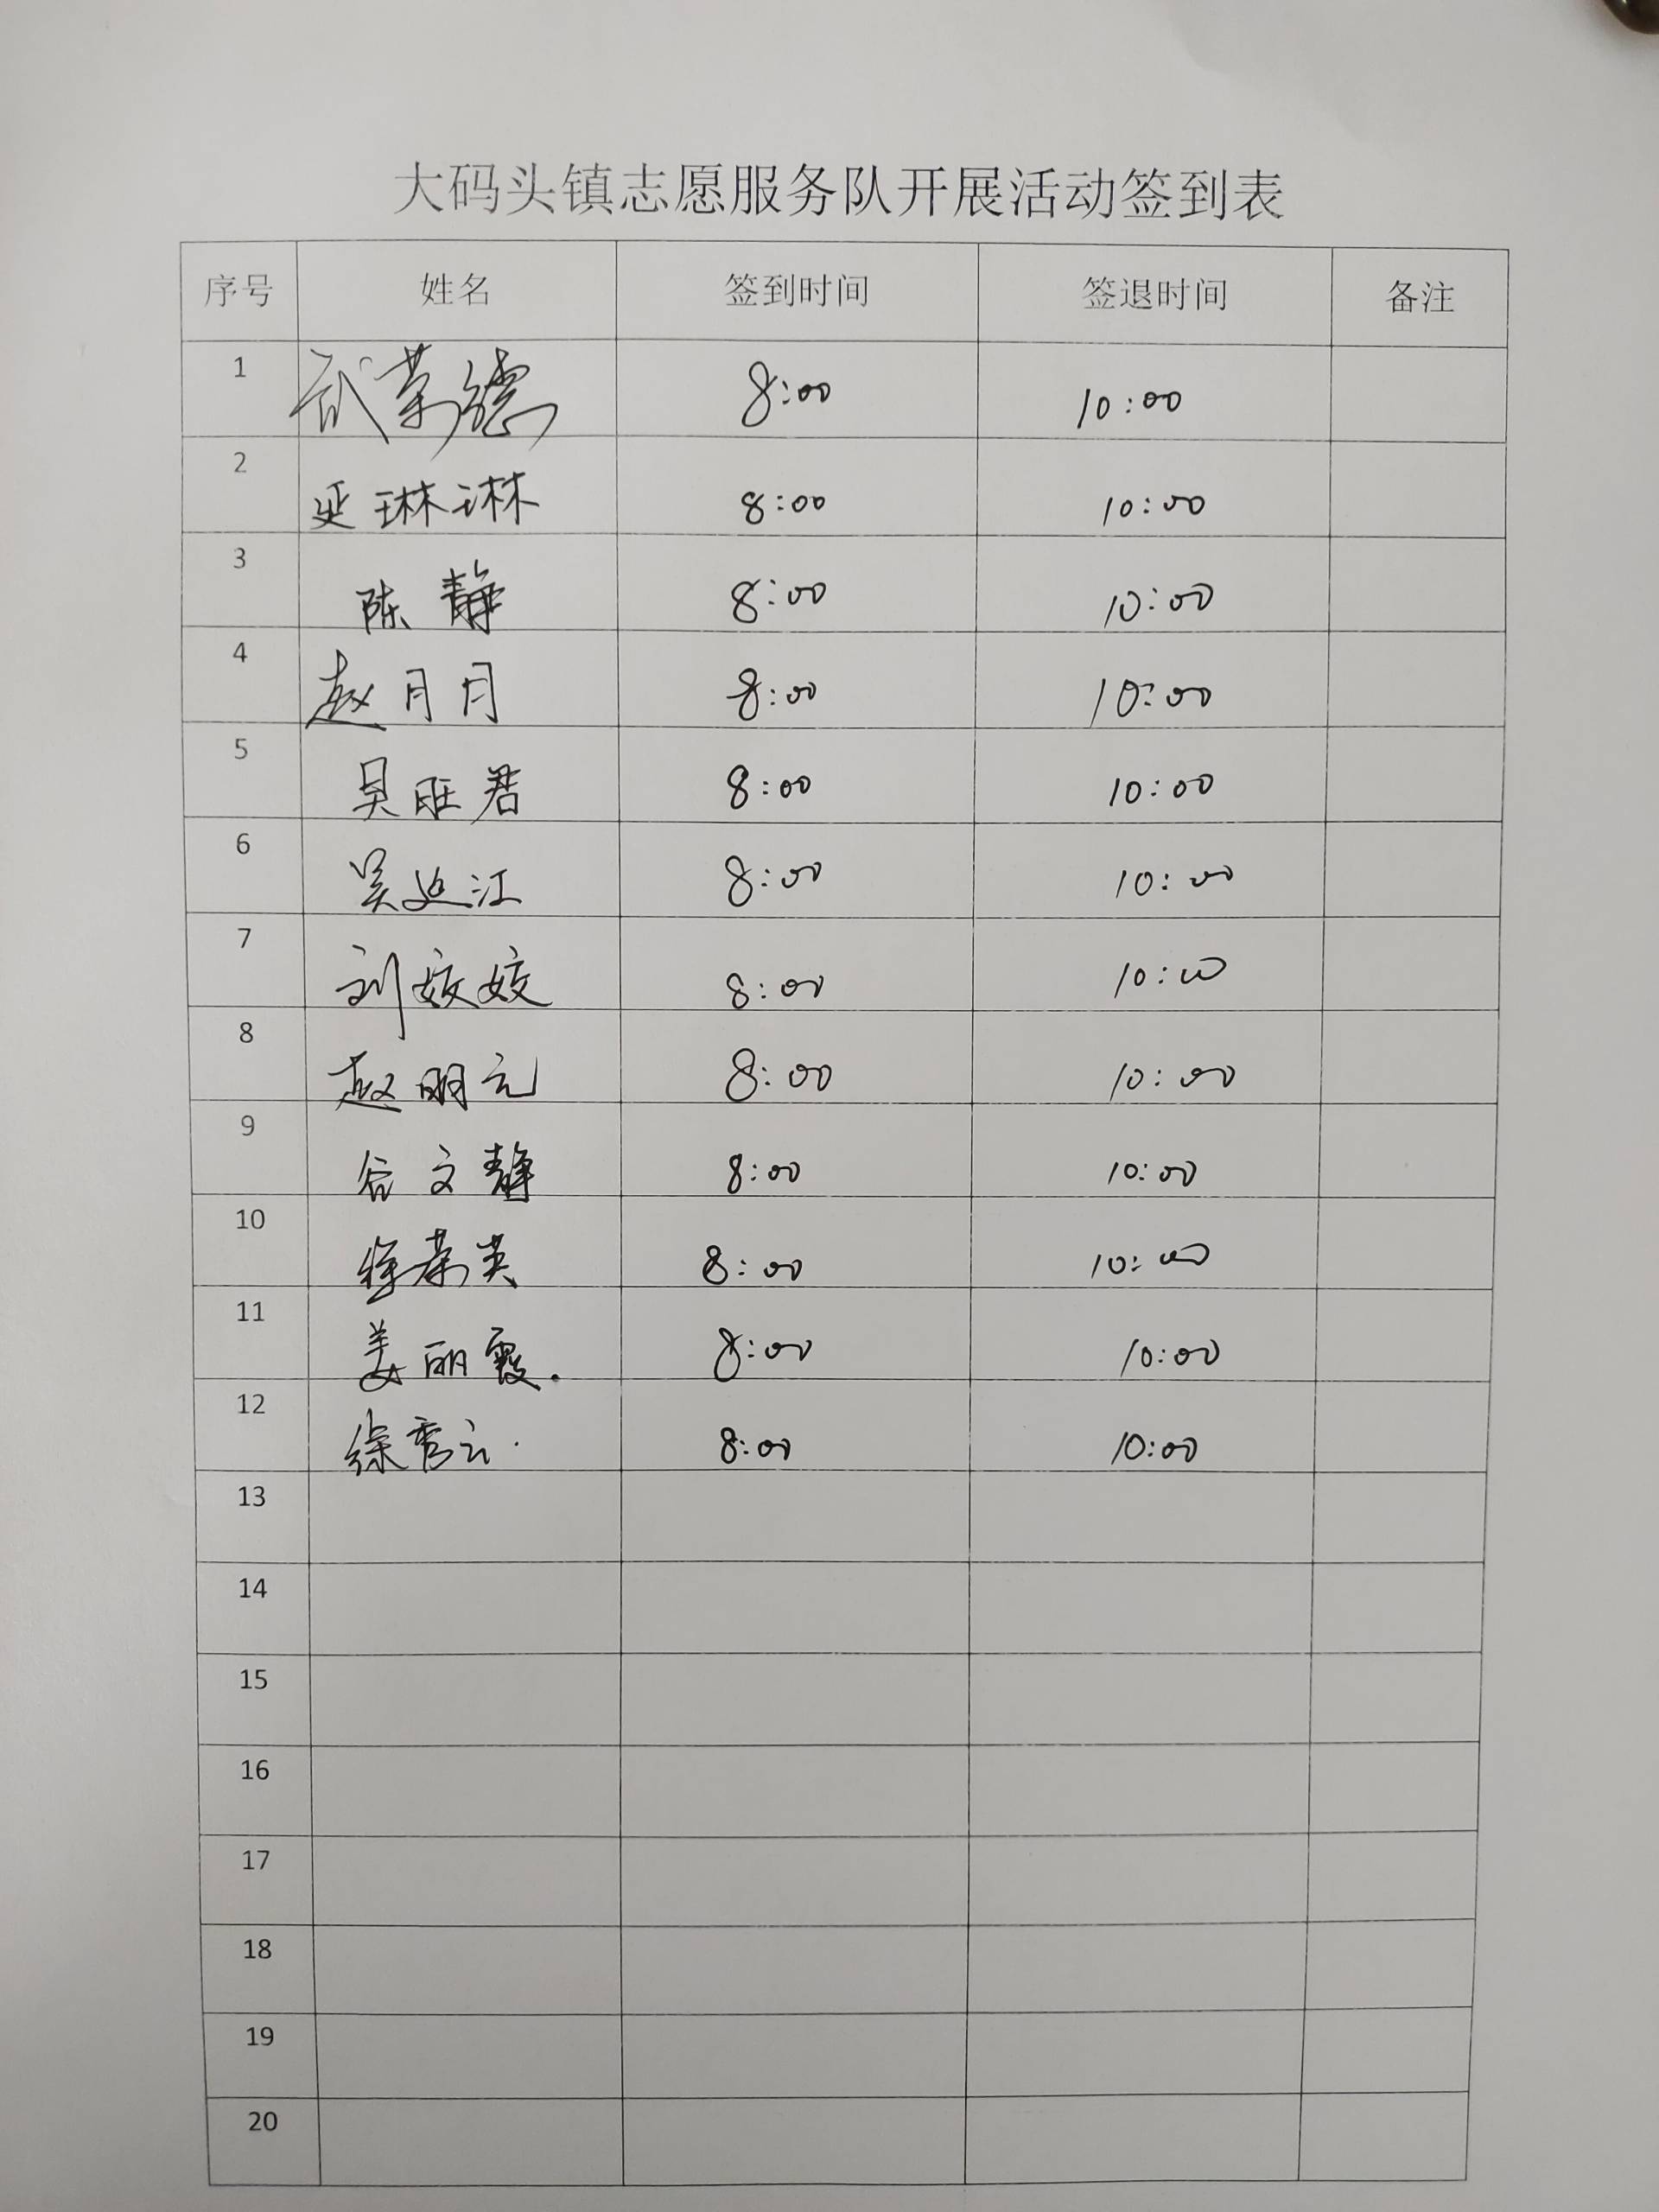 大码头镇志愿服务队开展活动签到表
序号 姓名 签到时间 签退时间 备注
1 武荣德 8:00 10:00
2 延琳琳 8:00 10:00
3 陈静 8:00 10:00
4 赵月月 8:00 10:00
5 吴胜君 8:00 10:00
6 吴延江 8:00 10:00
7 刘姣姣 8:00 10:00
8 赵明元 8:00 10:00
9 谷文静 8:00 10:00
10 徐荣英 8:00 10:00
11 姜丽霞. 8:00 10:00
12 徐秀云. 8:00 10:00
13
14
15
16
17
18
19
20